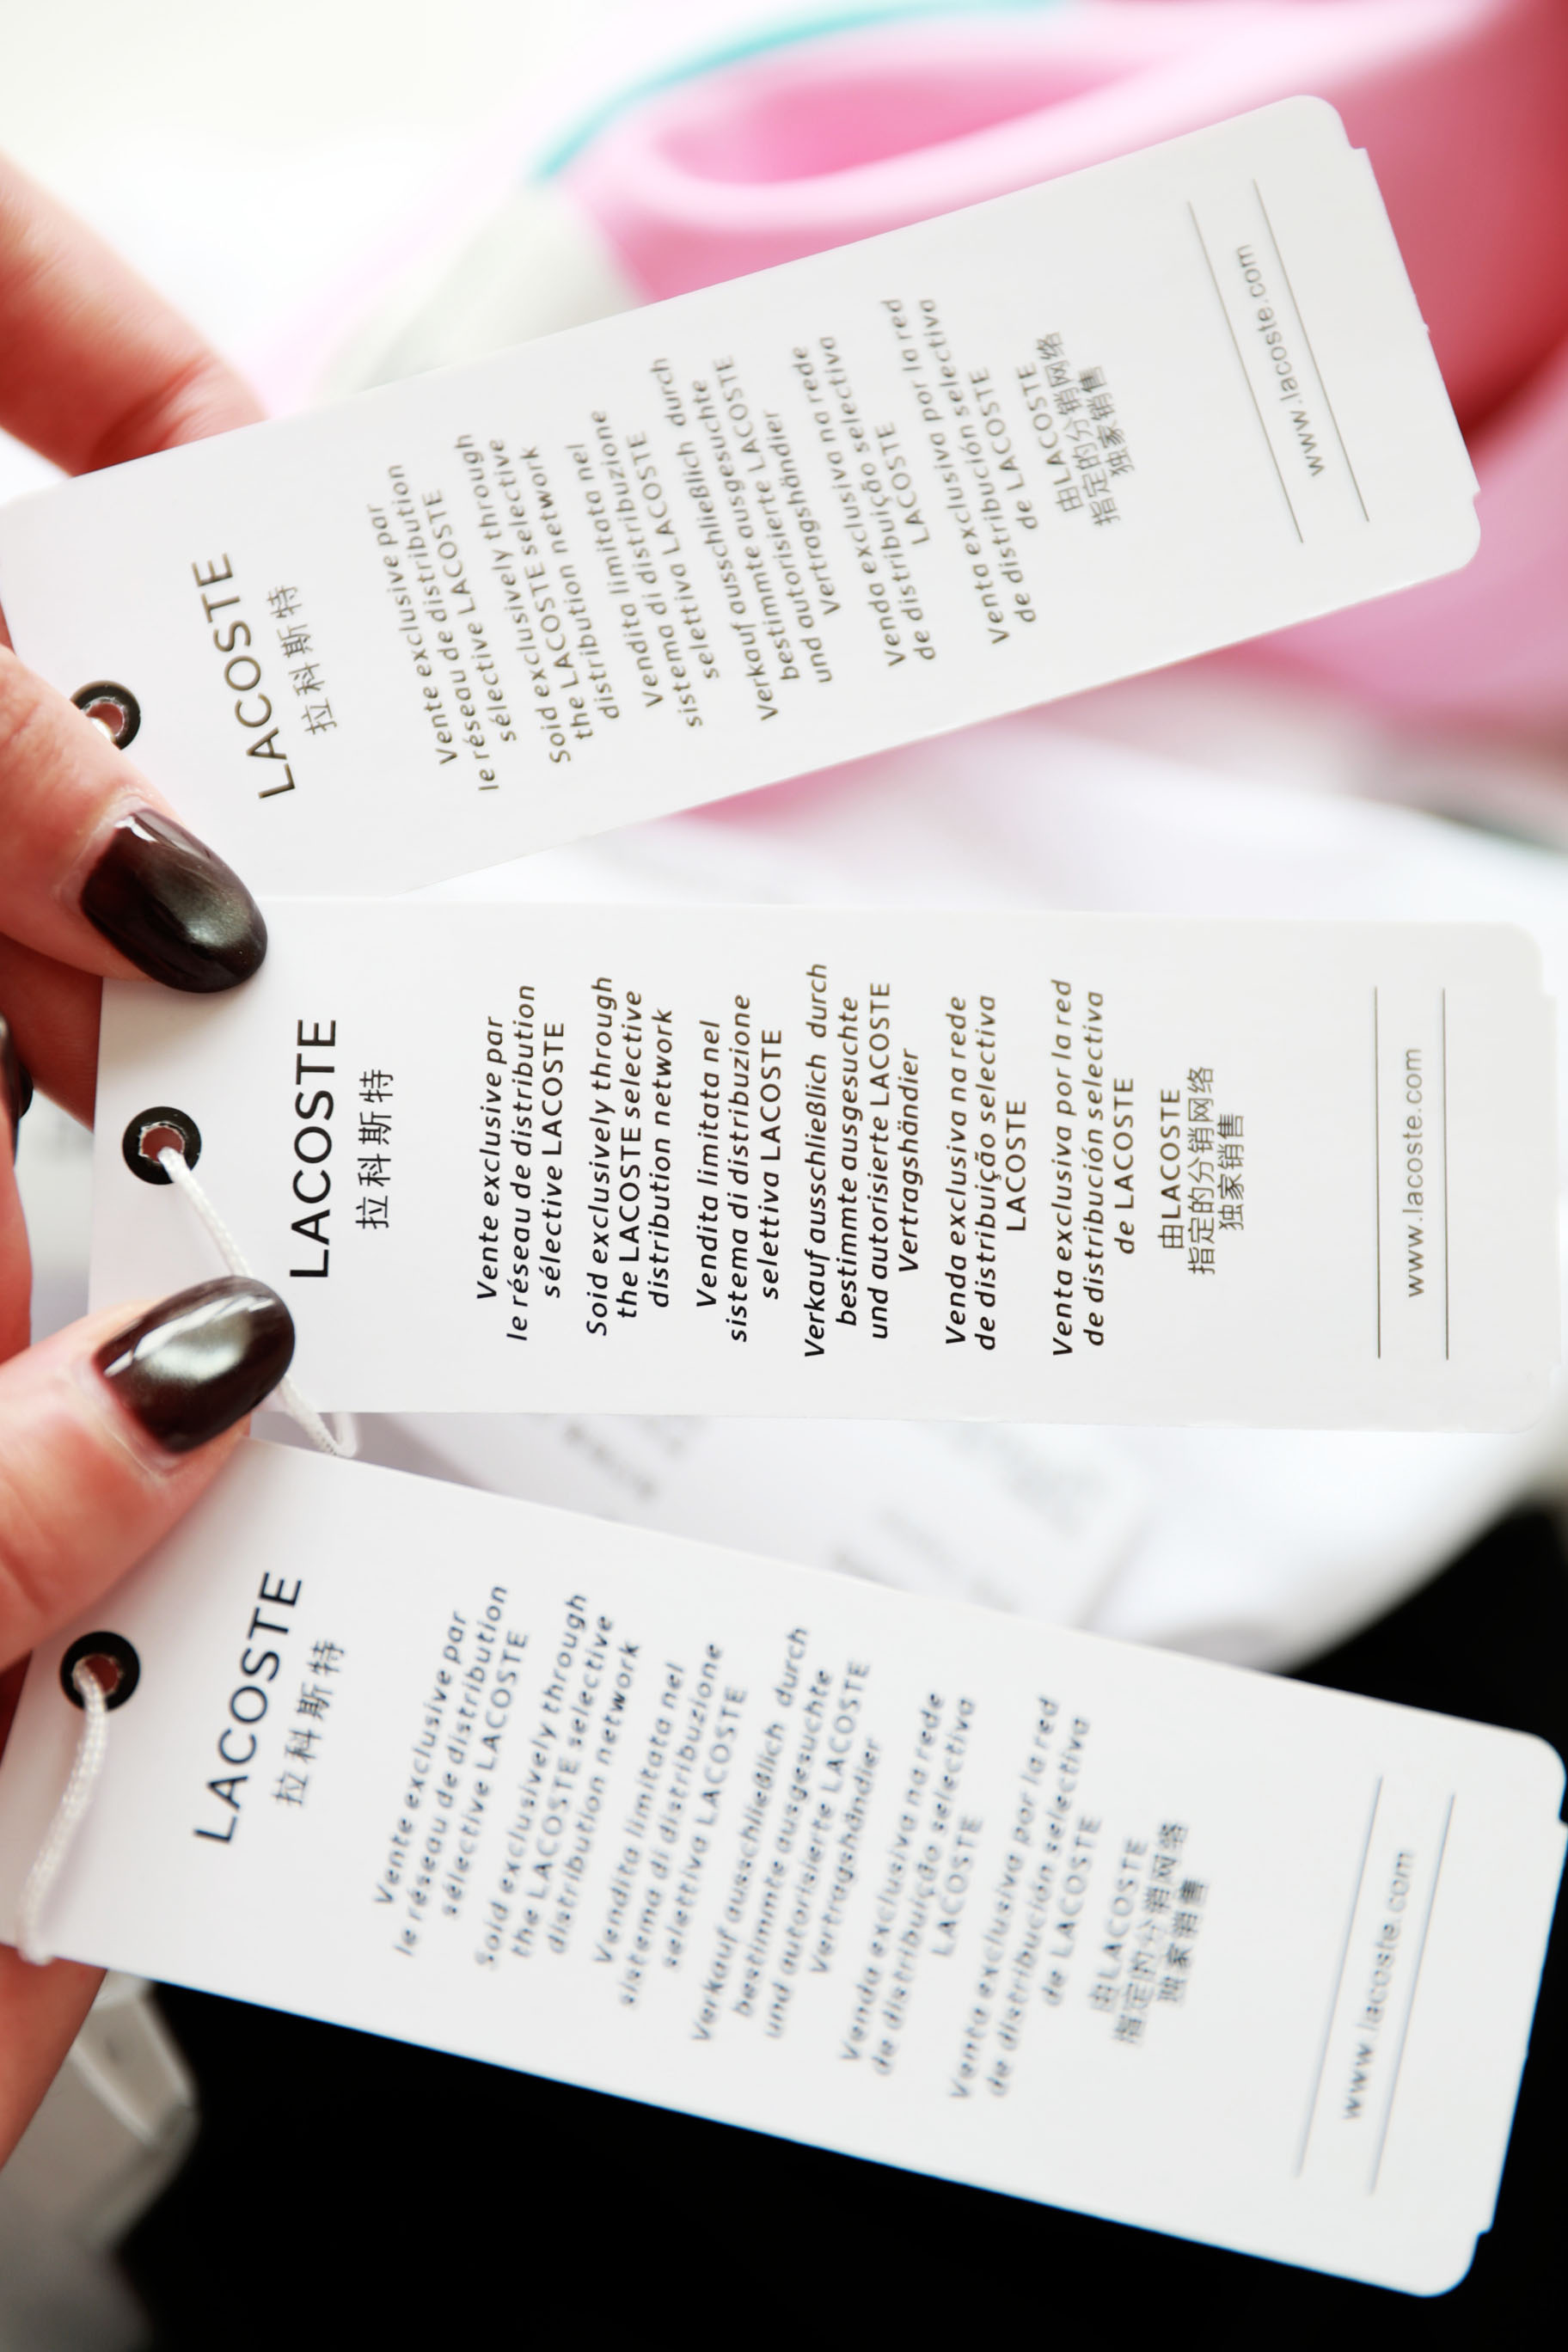 LACOSTE
拉科斯特
Vente exclusive par
le réseau de distribution
sélective LACOSTE
Soid exclusively through
the LACOSTE selective
distribution network
Vendita limitata nel
sistema di distribuzione
selettiva LACOSTE
Verkauf ausschließlich durch
bestimmte ausgesuchte
und autorisierte LACOSTE
Vertragshändier
Venda exclusiva na rede
de distribuição selectiva
LACOSTE
Venta exclusiva por la red
de distribución selectiva
de LACOSTE
由LACOSTE
指定的分销网络
独家销售
www.lacoste.com
LACOSTE
拉科斯特
Vente exclusive par
le réseau de distribution
sélective LACOSTE
Soid exclusively through
the LACOSTE selective
distribution network
Vendita limitata nel
sistema di distribuzione
selettiva LACOSTE
Verkauf ausschließlich durch
bestimmte ausgesuchte
und autorisierte LACOSTE
Vertragshändier
Venda exclusiva na rede
de distribuição selectiva
LACOSTE
Venta exclusiva por la red
de distribución selectiva
de LACOSTE
由LACOSTE
指定的分销网络
独家销售
www.lacoste.com
LACOSTE
拉科斯特
Vente exclusive par
le réseau de distribution
sélective LACOSTE
Soid exclusively through
the LACOSTE selective
distribution network
Vendita limitata nel
sistema di distribuzione
selettiva LACOSTE
Verkauf ausschließlich durch
bestimmte ausgesuchte
und autorisierte LACOSTE
Vertragshändier
Venda exclusiva na rede
de distribuição selectiva
LACOSTE
Venta exclusiva por la red
de distribución selectiva
de LACOSTE
由LACOSTE
指定的分销网络
独家销售
www.lacoste.com